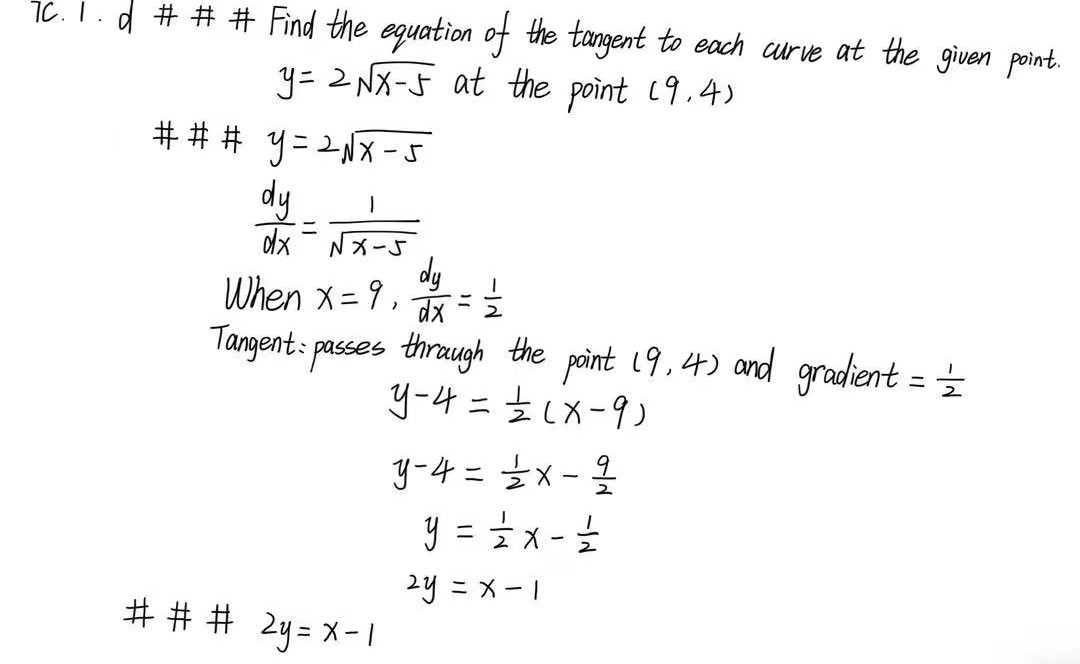 7C. 1. d # # # Find the equation of the tangent to each curve at the given point.
y = 2√(x-5) at the point (9,4)
# # # y = 2√(x-5)
dy/dx = 1/√(x-5)
When x = 9, dy/dx = 1/2
Tangent: passes thraugh the point (9,4) and gradient = 1/2
y-4 = 1/2 (x-9)
y-4 = 1/2 x - 9/2
y = 1/2 x - 1/2
2y = x - 1
# # # 2y = x - 1